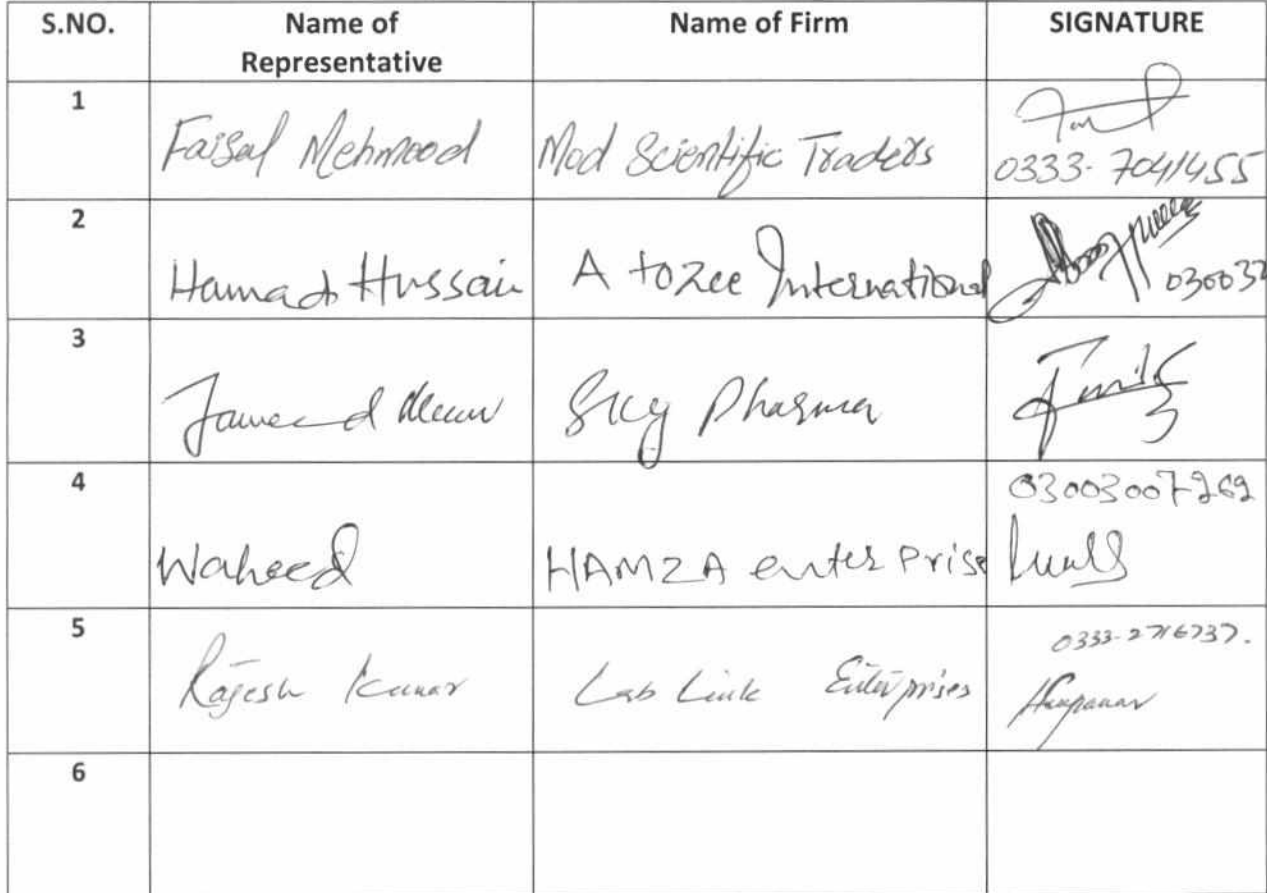 S.NO. Name of Representative Name of Firm SIGNATURE
1 Faisal Mehmood Med Scientific Traders
0333-7041455
2 Hamad Hussain A to Zee International 030032
3 Sky Pharma
4 03003007262
Waheed HAMZA enter Prise
5 0333-2716737.
Rajesh Kumar Lab Link Enterprises
6